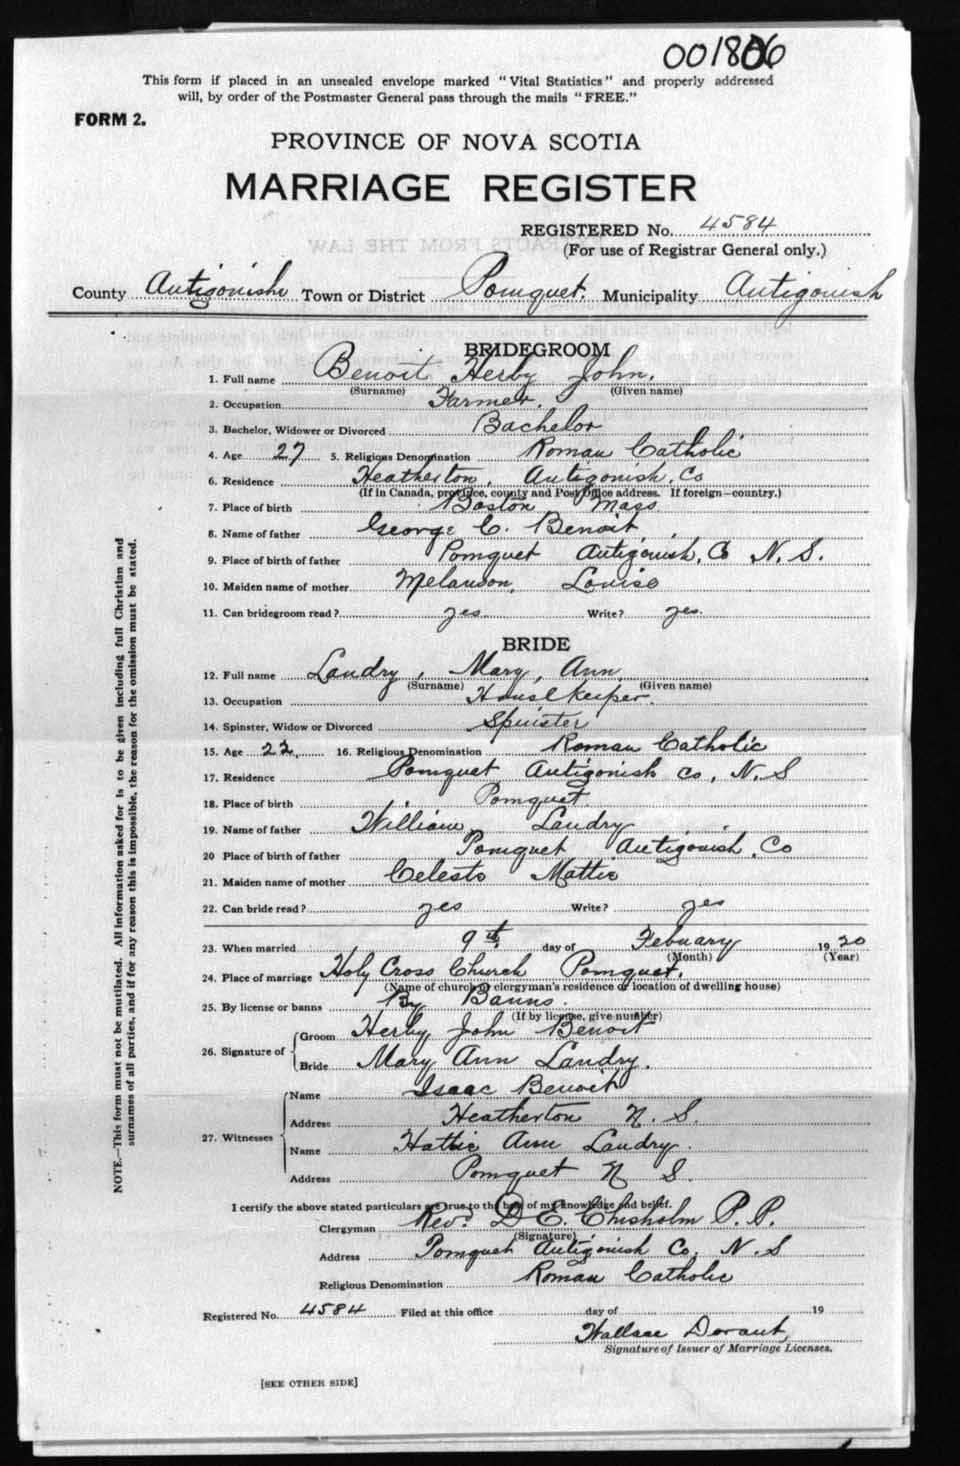 001806
This form if placed in an unsealed envelope marked "Vital Statistics" and properly addressed
will, by order of the Postmaster General pass through the mails "FREE."
FORM 2.
PROVINCE OF NOVA SCOTIA
MARRIAGE REGISTER
REGISTERED No. 4584
(For use of Registrar General only.)
County Antigonish Town or District Pomquet. Municipality Antigonish
BRIDEGROOM
1. Full name Benoit Herby John.
(Surname) (Given name)
2. Occupation Farmer.
3. Bachelor, Widower or Divorced Bachelor
4. Age 27 5. Religious Denomination Roman Catholic
6. Residence Heatherton, Antigonish, Co
(If in Canada, province, county and Post Office address. If foreign—country.)
7. Place of birth Boston Mass
8. Name of father George C. Benoit
9. Place of birth of father Pomquet Antigonish, Co N. S.
10. Maiden name of mother Melanson, Louise
11. Can bridegroom read? yes Write? yes.
BRIDE
12. Full name Landry, Mary, Ann
(Surname) (Given name)
13. Occupation Houselkeeper.
14. Spinster, Widow or Divorced Spinster
15. Age 22, 16. Religious Denomination Roman Catholic
17. Residence Pomquet Antigonish Co, N. S
18. Place of birth Pomquet
19. Name of father William Landry
20 Place of birth of father Pomquet Antigonish, Co
21. Maiden name of mother Celeste Mattie
22. Can bride read? yes Write? yes
23. When married 9th day of Febuary 1920
(Month) (Year)
24. Place of marriage Holy Cross Church Pomquet.
(Name of church or clergyman's residence or location of dwelling house)
25. By license or banns By Banns.
(If by license, give number)
26. Signature of Groom Herby John Benoit
Bride Mary Ann Landry.
27. Witnesses Name Isaac Benoit
Address Heatherton N. S.
Name Hattie Ann Landry.
Address Pomquet N S.
I certify the above stated particulars are true to the best of my knowledge and belief.
Clergyman Rev. D E. Chisholm P. P.
(Signature)
Address Pomquet Antigonish Co, N. S
Religious Denomination Roman Catholic
Registered No. 4584 Filed at this office day of 19
Wallace Dorant
Signature of Issuer of Marriage Licenses.
[SEE OTHER SIDE]
NOTE.—This form must not be mutilated. All information asked for is to be given including full Christian and
surnames of all parties, and if for any reason this is impossible, the reason for the omission must be stated.